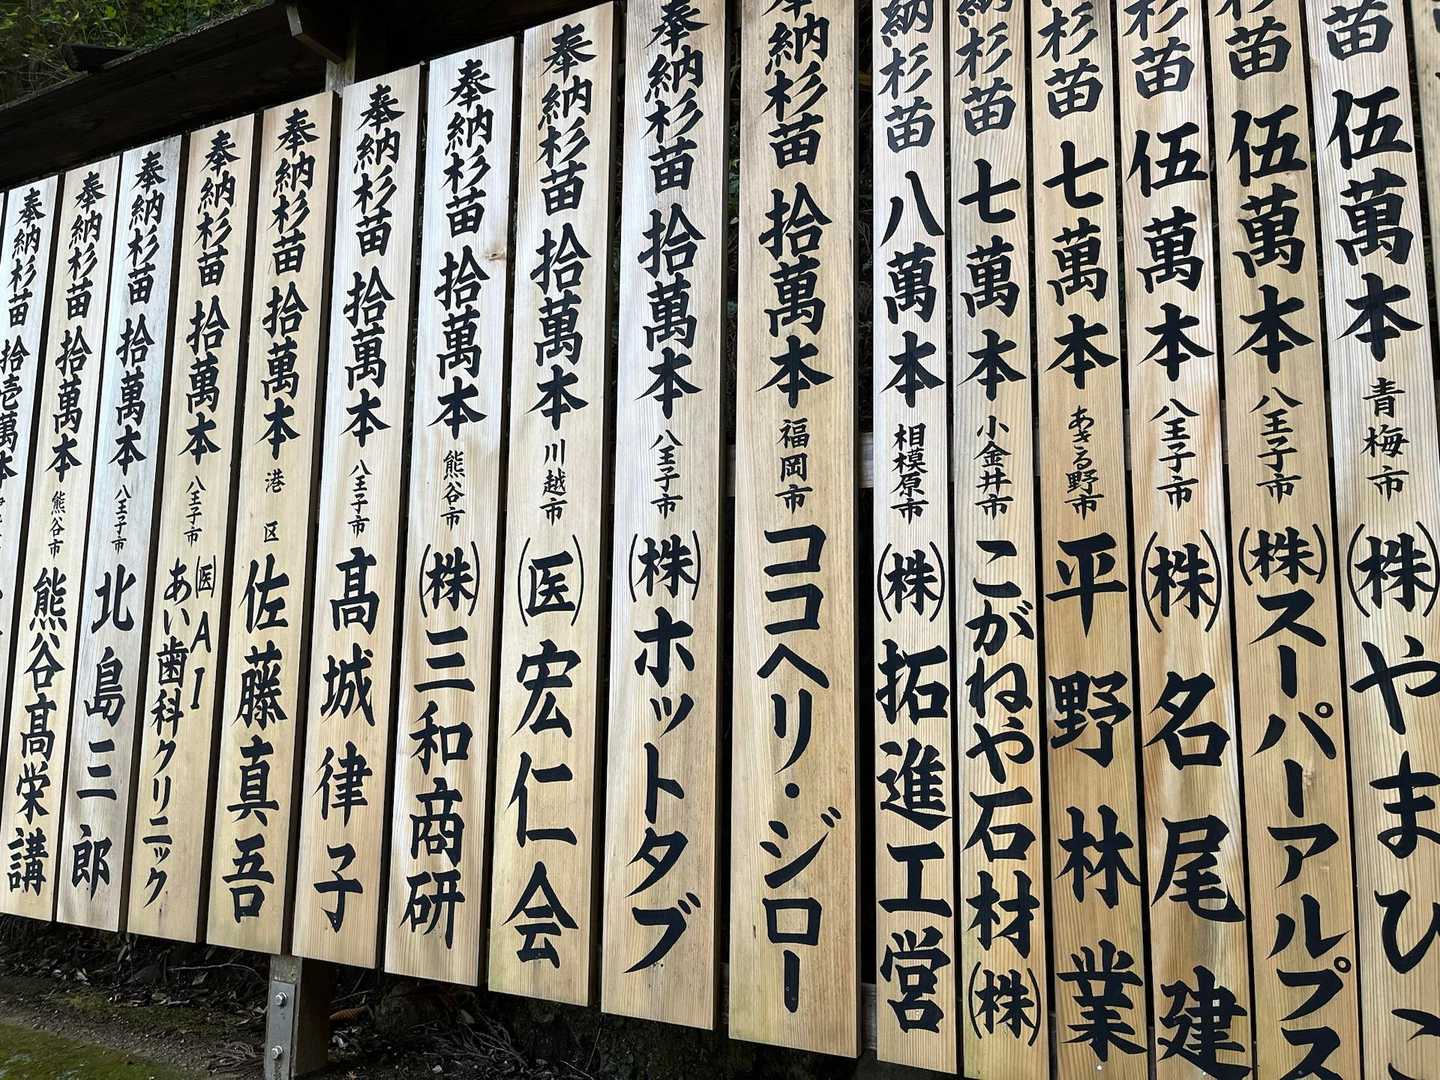 苗 伍萬本 青梅市 (株)やまひこ
杉苗 伍萬本 八王子市 (株)スーパーアルプス
杉苗 伍萬本 八王子市 (株)名尾建
杉苗 七萬本 あきる野市 平野林業
納杉苗 七萬本 小金井市 こがねや石材(株)
納杉苗 八萬本 相模原市 (株)拓進工営
奉納杉苗 拾萬本 福岡市 ココヘリ・ジロー
奉納杉苗 拾萬本 八王子市 (株)ホットタブ
奉納杉苗 拾萬本 川越市 (医)宏仁会
奉納杉苗 拾萬本 熊谷市 (株)三和商研
奉納杉苗 拾萬本 八王子市 髙城律子
奉納杉苗 拾萬本 港区 佐藤真吾
奉納杉苗 拾萬本 八王子市 (医)AI
あい歯科クリニック
奉納杉苗 拾萬本 八王子市 北島三郎
奉納杉苗 拾萬本 熊谷市 熊谷髙栄講
奉納杉苗 拾壱萬本